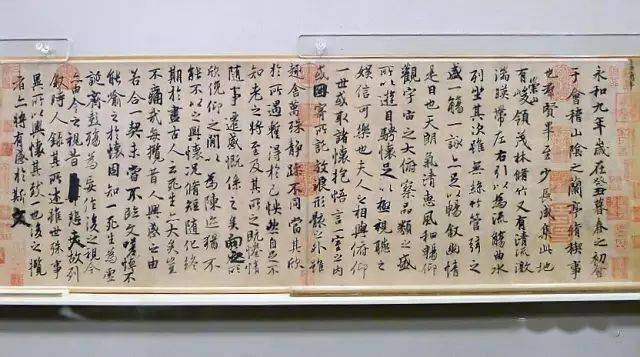 永和九年歲在癸丑暮春之初會
于會稽山陰之蘭亭脩禊事
也羣賢畢至少長咸集此地
有崇山峻領茂林脩竹又有清流激
湍暎帶左右引以為流觴曲水
列坐其次雖無絲竹管弦之
盛一觴一詠亦足以暢叙幽情
是日也天朗氣清惠風和暢仰
觀宇宙之大俯察品類之盛
所以遊目騁懷足以極視聽之
娛信可樂也夫人之相與俯仰
一世或取諸懷抱悟言一室之內
或因寄所託放浪形骸之外雖
趣舍萬殊靜躁不同當其欣
於所遇蹔得於己怏然自足不
知老之將至及其所之既惓情
隨事遷感慨係之矣向之所
欣俛仰之閒以為陳迹猶不
能不以之興懷況脩短隨化終
期於盡古人云死生亦大矣豈
不痛哉每攬昔人興感之由
若合一契未嘗不臨文嗟悼不
能喻之於懷固知一死生為虛
誕齊彭殤為妄作後之視今
亦由今之視昔悲夫故列
叙時人錄其所述雖世殊事
異所以興懷其致一也後之攬
者亦將有感於斯文